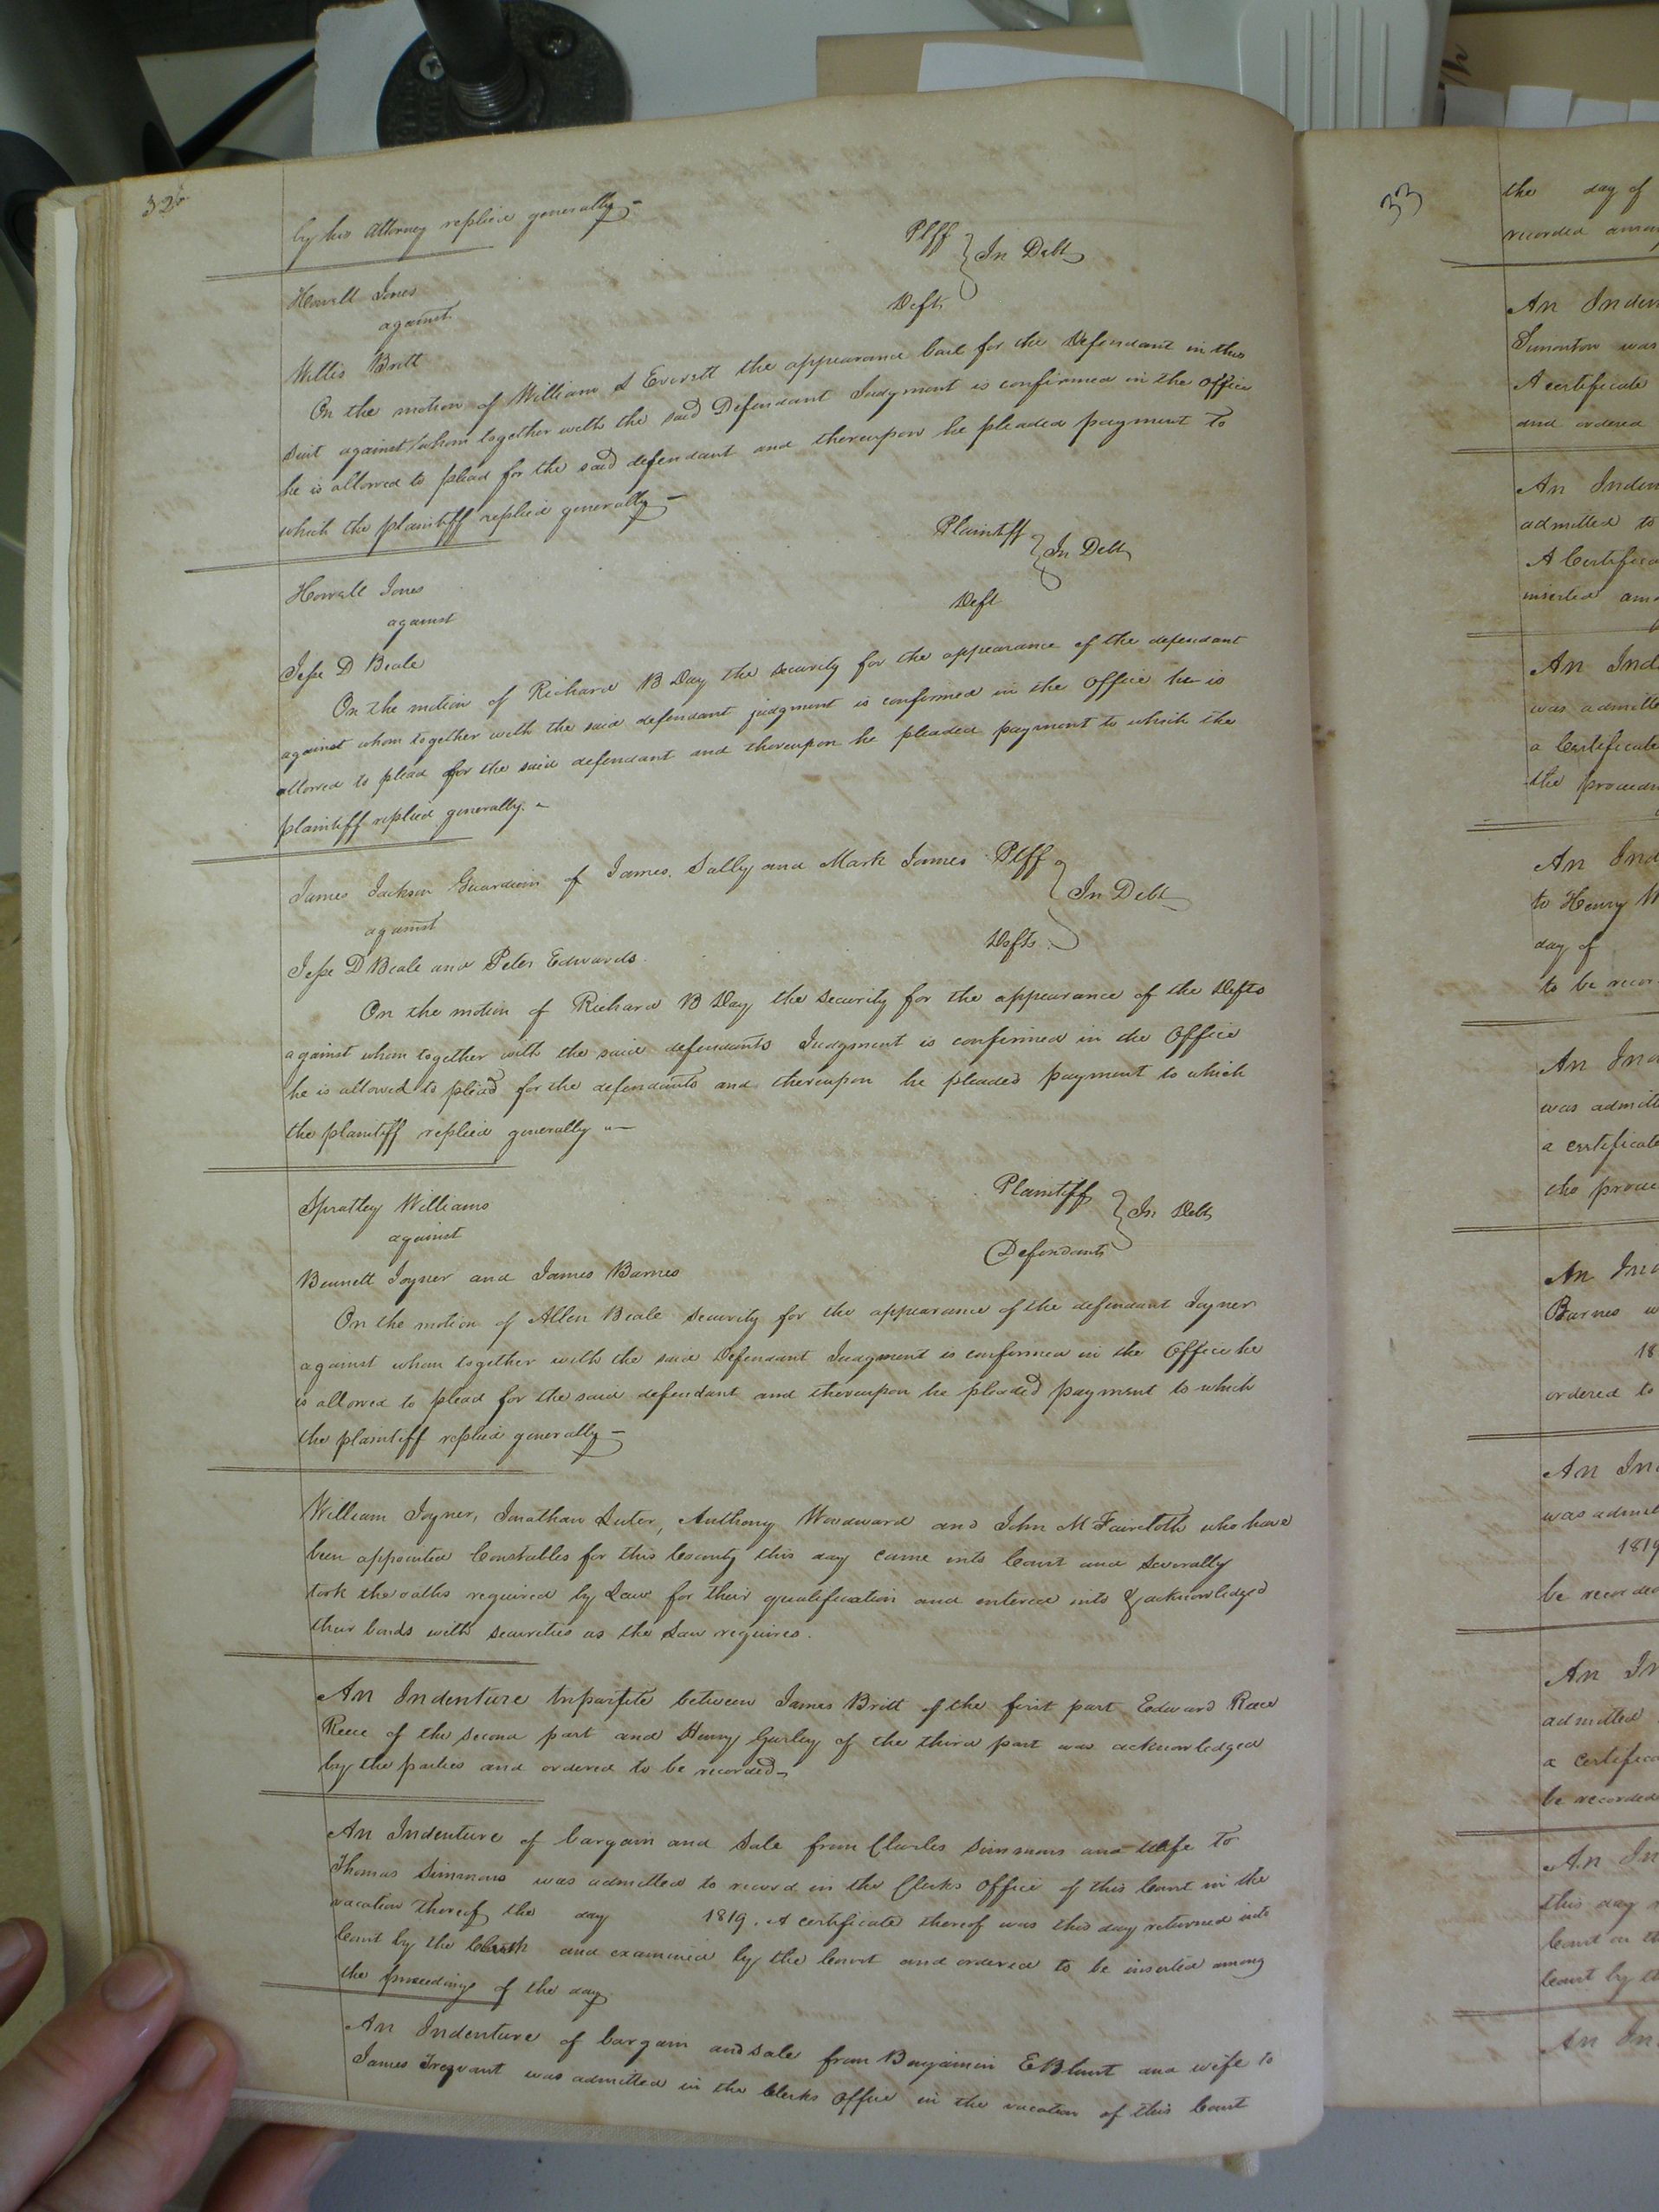 326
by his Attorney replied generally –
Howell Jones Plff
against In Debt
Willis Britt Deft
On the motion of William S Everett the appearance bail for the Defendant in this
suit against whom together with the said Defendant Judgment is confirmed in the Office
he is allowed to plead for the said defendant and thereupon he pleaded payment to
which the plaintiff replied generally –
Howell Jones Plaintiff
against In Debt
Jesse D Beale Deft
On the motion of Richard B Day the security for the appearance of the defendant
against whom together with the said defendant judgment is confirmed in the Office he is
allowed to plead for the said defendant and thereupon he pleaded payment to which the
plaintiff replied generally. –
James Jackson Guardian of James, Sally and Mark James Plff
against In Debt
Jesse D Beale and Peter Edwards Defts
On the motion of Richard B Day the security for the appearance of the Defts
against whom together with the said defendants Judgment is confirmed in the Office
he is allowed to plead for the defendants and thereupon he pleaded payment to which
the plantiff replied generally –
Spratley Williams Plaintiff
against In Debt
Bennett Joyner and James Barnes Defendants
On the motion of Allen Beale security for the appearance of the defendant Joyner
against whom together with the said Defendant Judgment is confirmed in the Office he
is allowed to plead for the said defendant and thereupon he pleaded payment to which
the plaintiff replied generally –
William Joyner, Jonathan Luter, Anthony Woodward and John M Faircloth who have
been appointed Constables for this County this day came into Court and severally
took the oaths required by Law for their qualification and entered into & acknowledged
their bonds with securities as the Law requires.
An Indenture tripartite between James Britt of the first part Edward Reece
Reece of the second part and Henry Gurley of the third part was acknowledged
by the parties and ordered to be recorded –
An Indenture of bargain and Sale from Charles Simmons and wife to
Thomas Simmons was admitted to record in the Clerks Office of this Court in the
vacation thereof the day 1819. A certificate thereof was this day returned into
Court by the Clerk and examined by the Court and ordered to be inserted among
the proceedings of the day
An Indenture of bargain and sale from Benjamin E Blunt and wife to
James Trezvant was admitted in the Clerks Office in the vacation of this Court
33
the day of
recorded
An
Simonton was
A certificate
and ordered
An
admitted to
A
inserted
An
was
a
the
An
to Henry
day of
to be
An
was
a
the
An
Barnes
18
ordered to
An
was
1819
be
An
admitted
a
be recorded
An
this day
Court
Court by
An